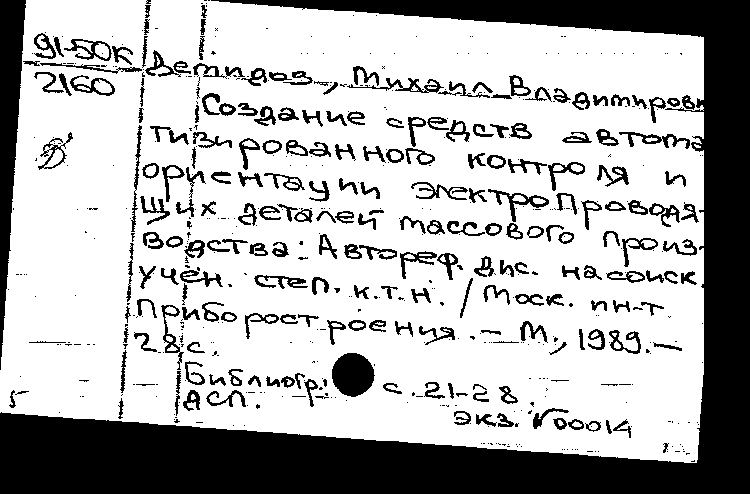 91-50К
2160
Демидов, Михаил Владимирови
Создание средств автома
тизированного контроля и
ориентации электропроводя-
щих деталей массового произ-
водства: Автореф. дис. на соиск.
учен. степ. к.т.н. / Моск. ин-т
приборостроения. - М., 1989. -
28 с.
Библиогр.: с. 21-28.
ДСП.
экз. №00014
5